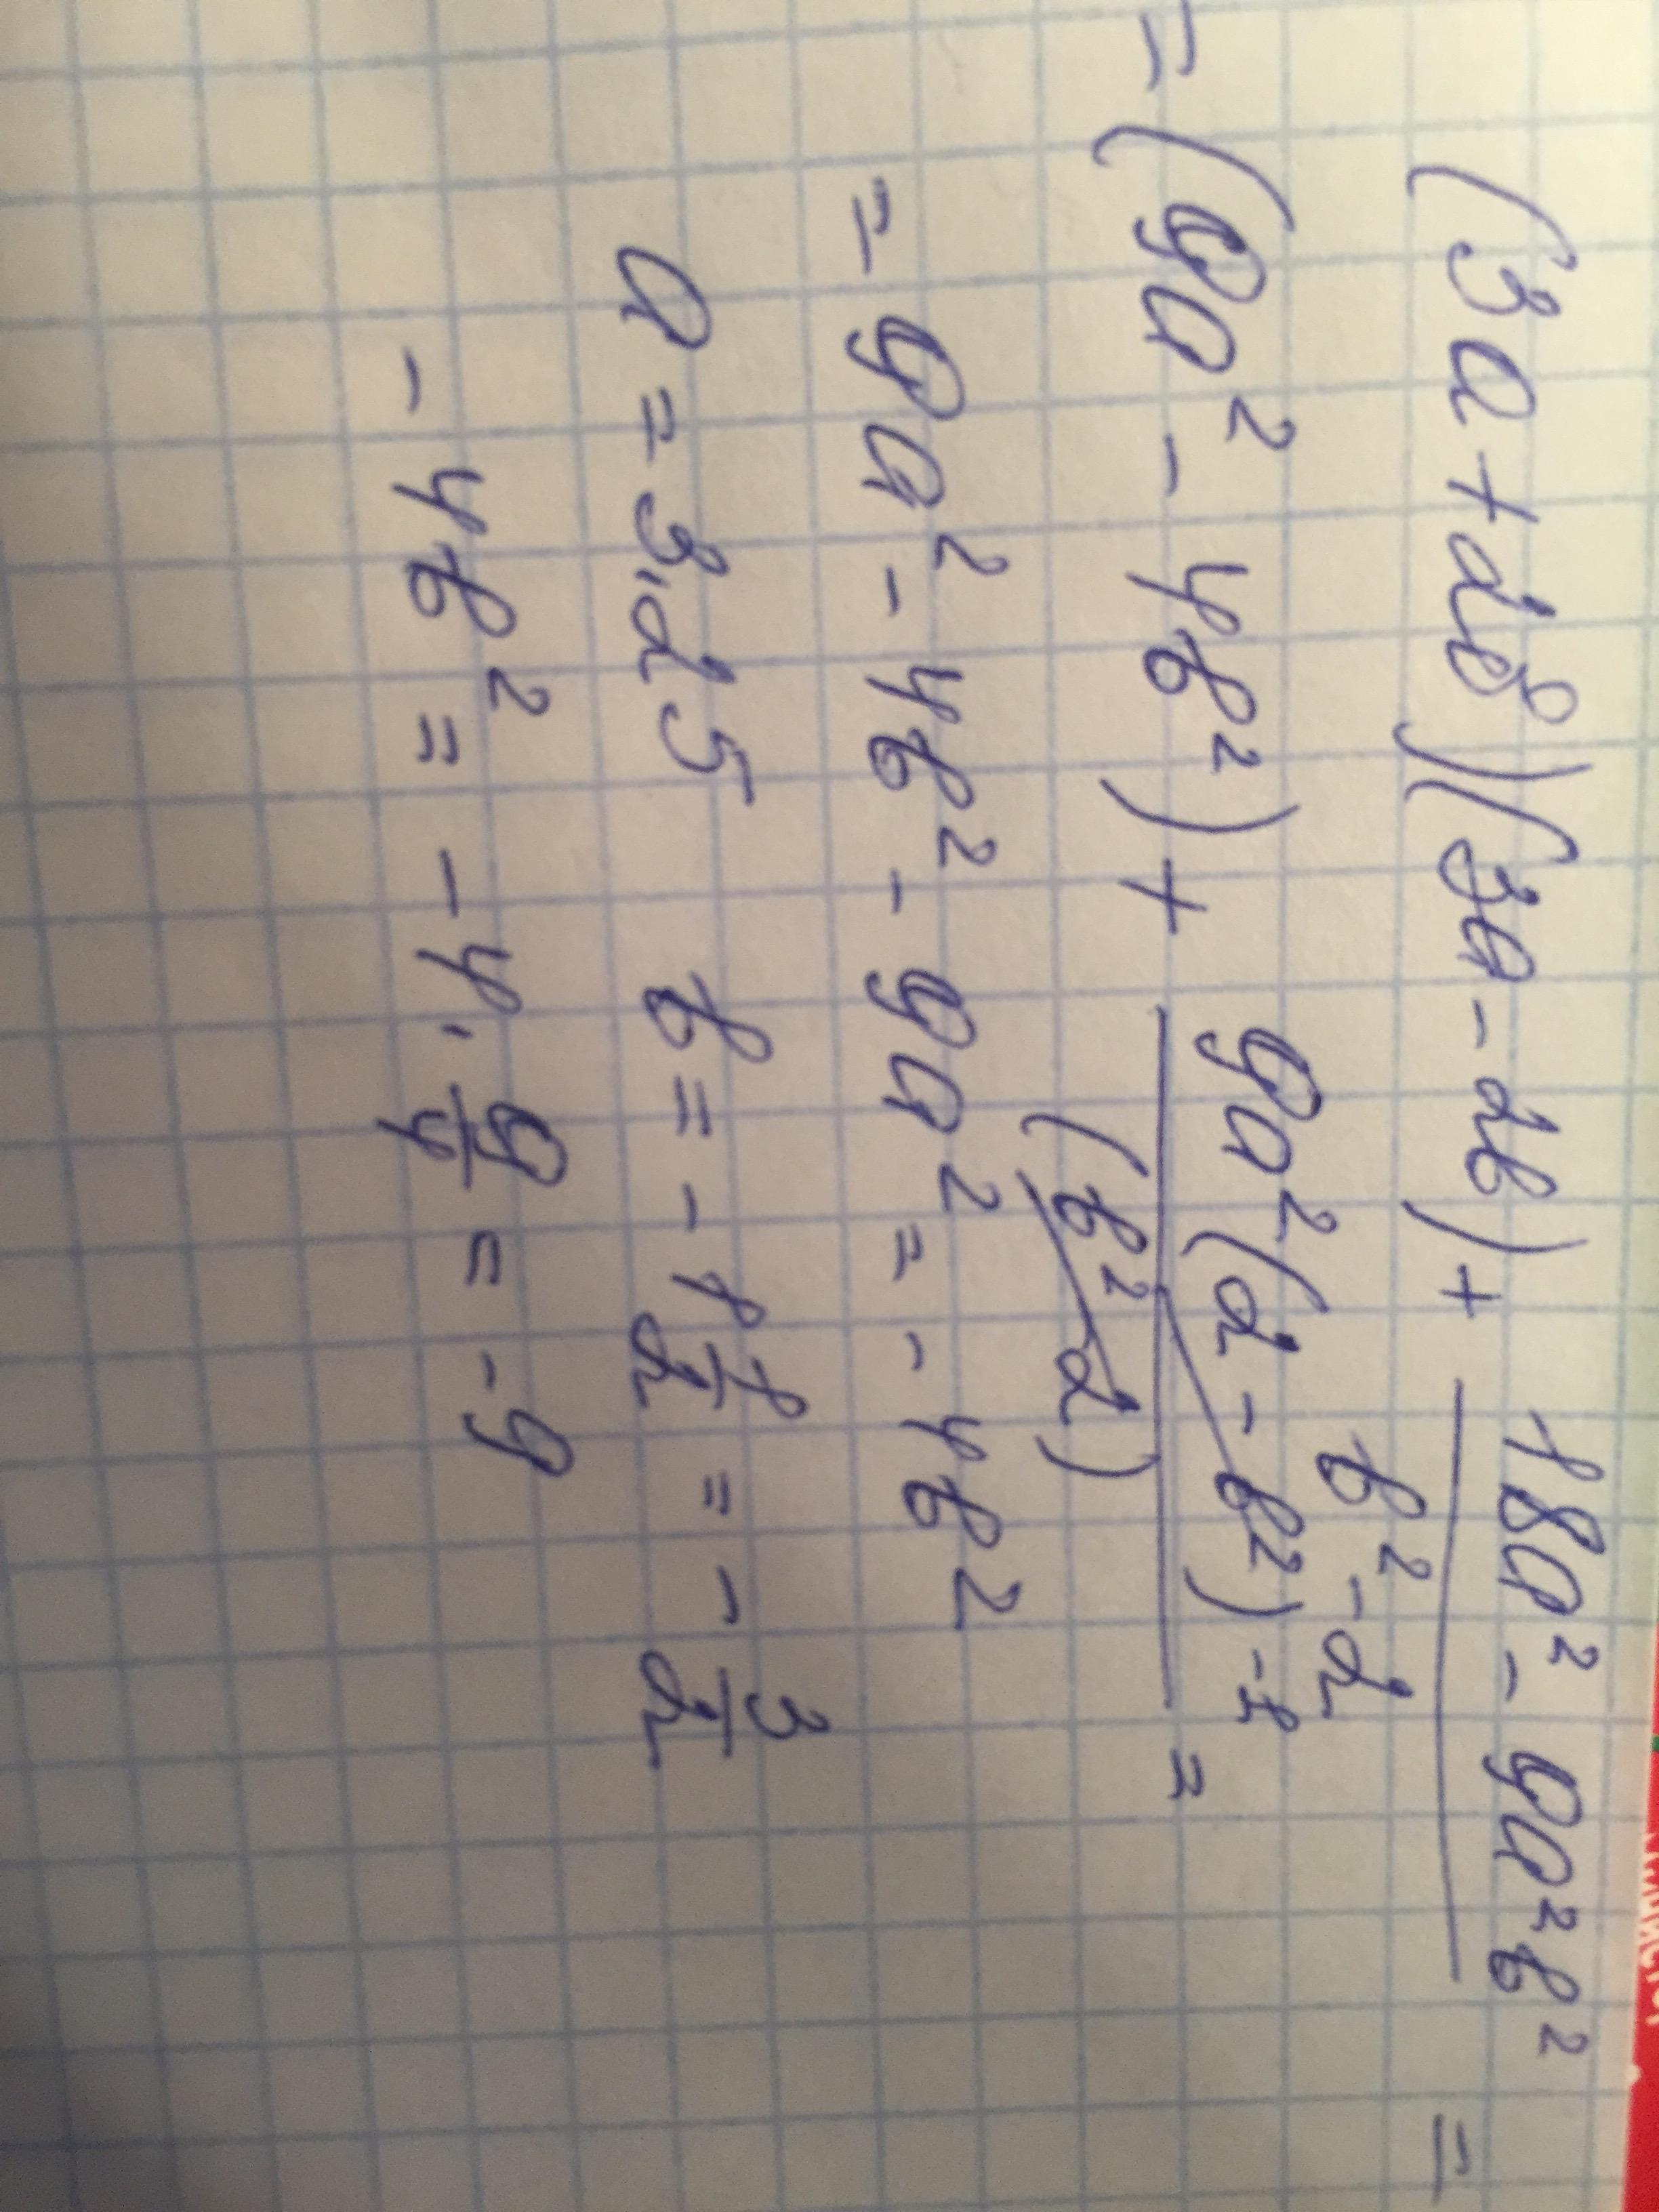 (3a+2в)(3a-2в)+ \frac{18a²-9a²в²}{в²-2} =
=(9a²-4в²)+ \frac{9a²(2-в²)^{-1}}{(в²-2)} =
=9a²-4в²-9a²=-4в²
a=3,25 в=-1\frac{1}{2}=-\frac{3}{2}
-4в²=-4·\frac{9}{4}=-9